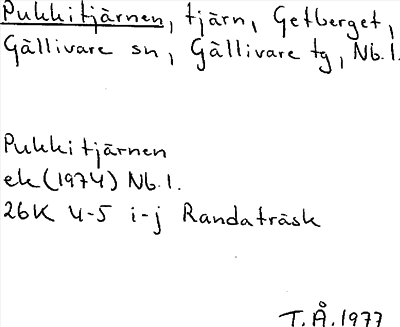 Pukkitjärnen, tjärn, Getberget,
Gällivare sn, Gällivare tg, Nb.l.
Pukkitjärnen
ek (1974) Nb.l.
26K 4-5 i-j Randaträsk
T.Å. 1977